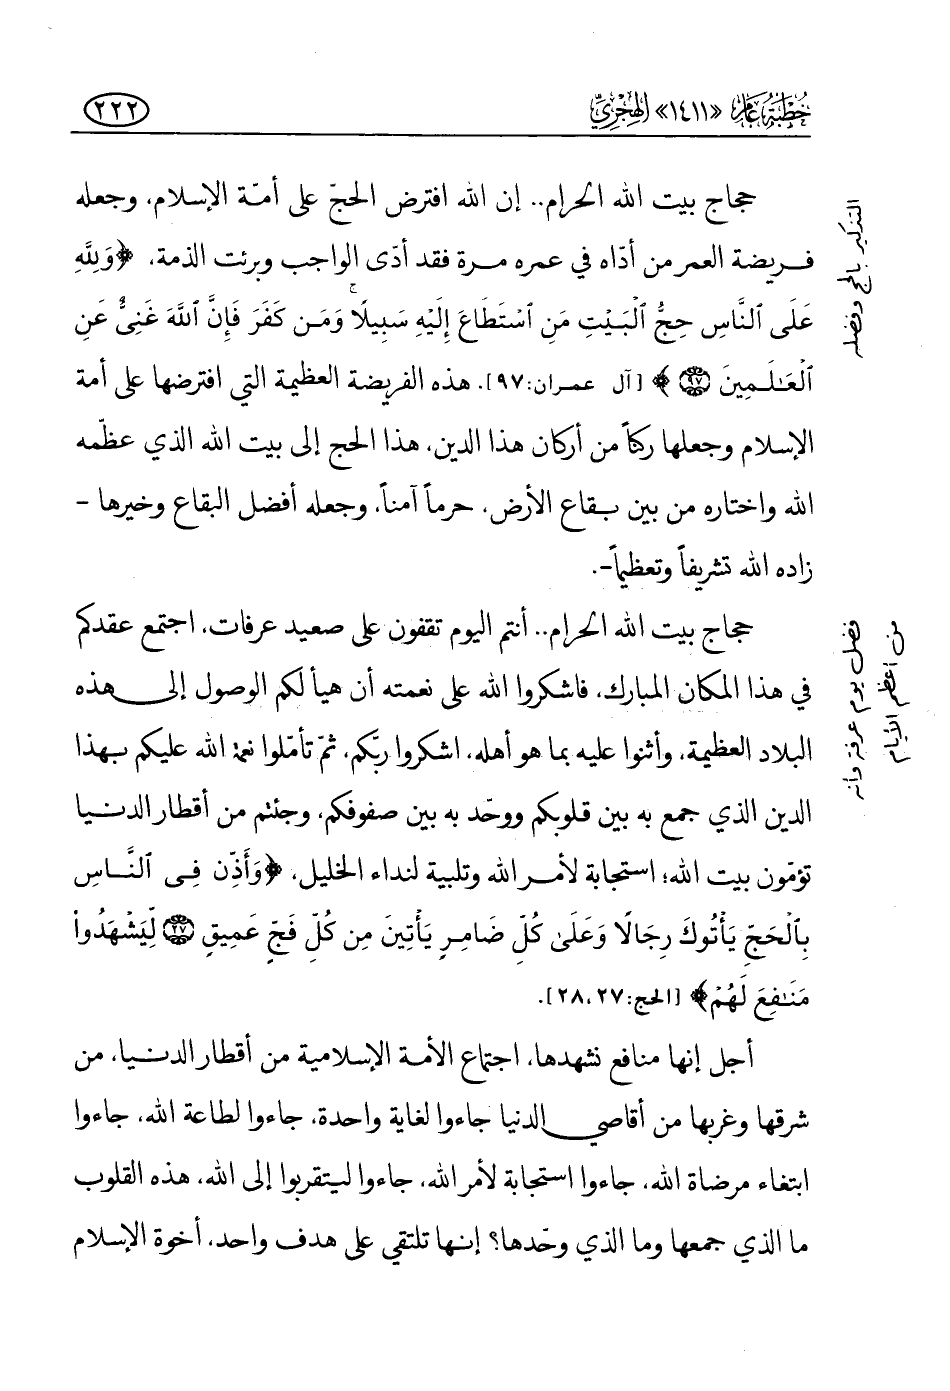 خُطْبَةُ عَامِ «١٤١١» الهِجْرِيِّ
٢٢٢
حجاج بيت الله الحرام.. إن الله افترض الحجّ على أمّة الإسلام، وجعله
فريضة العمر من أدّاه في عمره مرة فقد أدّى الواجب وبرئت الذمة، ﴿وَلِلَّهِ
عَلَى ٱلنَّاسِ حِجُّ ٱلْبَيْتِ مَنِ ٱسْتَطَاعَ إِلَيْهِ سَبِيلًا ۚ وَمَن كَفَرَ فَإِنَّ ٱللَّهَ غَنِىٌّ عَنِ
ٱلْعَـٰلَمِينَ ٩٧﴾ [آل عمران:٩٧]. هذه الفريضة العظيمة التي افترضها على أمة
الإسلام وجعلها ركناً من أركان هذا الدين، هذا الحج إلى بيت الله الذي عظّمه
الله واختاره من بين بقاع الأرض، حرماً آمناً، وجعله أفضل البقاع وخيرها -
زاده الله تشريفاً وتعظيماً-.
حجاج بيت الله الحرام.. أنتم اليوم تقفون على صعيد عرفات، اجتمع عقدكم
في هذا المكان المبارك، فاشكروا الله على نعمته أن هيأ لكم الوصول إلى هذه
البلاد العظيمة، وأثنوا عليه بما هو أهله، اشكروا ربّكم، ثمّ تأمّلوا نعمة الله عليكم بهذا
الدين الذي جمع به بين قلوبكم ووحّد به بين صفوفكم، وجئتم من أقطار الدنيا
تؤمّون بيت الله؛ استجابة لأمر الله وتلبية لنداء الخليل، ﴿وَأَذِّن فِى ٱلنَّاسِ
بِٱلْحَجِّ يَأْتُوكَ رِجَالًا وَعَلَىٰ كُلِّ ضَامِرٍ يَأْتِينَ مِن كُلِّ فَجٍّ عَمِيقٍ ٢٧ لِّيَشْهَدُوا۟
مَنَـٰفِعَ لَهُمْ﴾ [الحج:٢٧، ٢٨].
أجل إنها منافع نشهدها، اجتماع الأمة الإسلامية من أقطار الدنيا، من
شرقها وغربها من أقاصي الدنيا جاءوا لغاية واحدة، جاءوا لطاعة الله، جاءوا
ابتغاء مرضاة الله، جاءوا استجابة لأمر الله، جاءوا ليتقربوا إلى الله، هذه القلوب
ما الذي جمعها وما الذي وحّدها؟ إنها تلتقي على هدف واحد، أخوة الإسلام
التذكير بالحج وفضله
فضل يوم عرفة وأنه
من أعظم الأيام